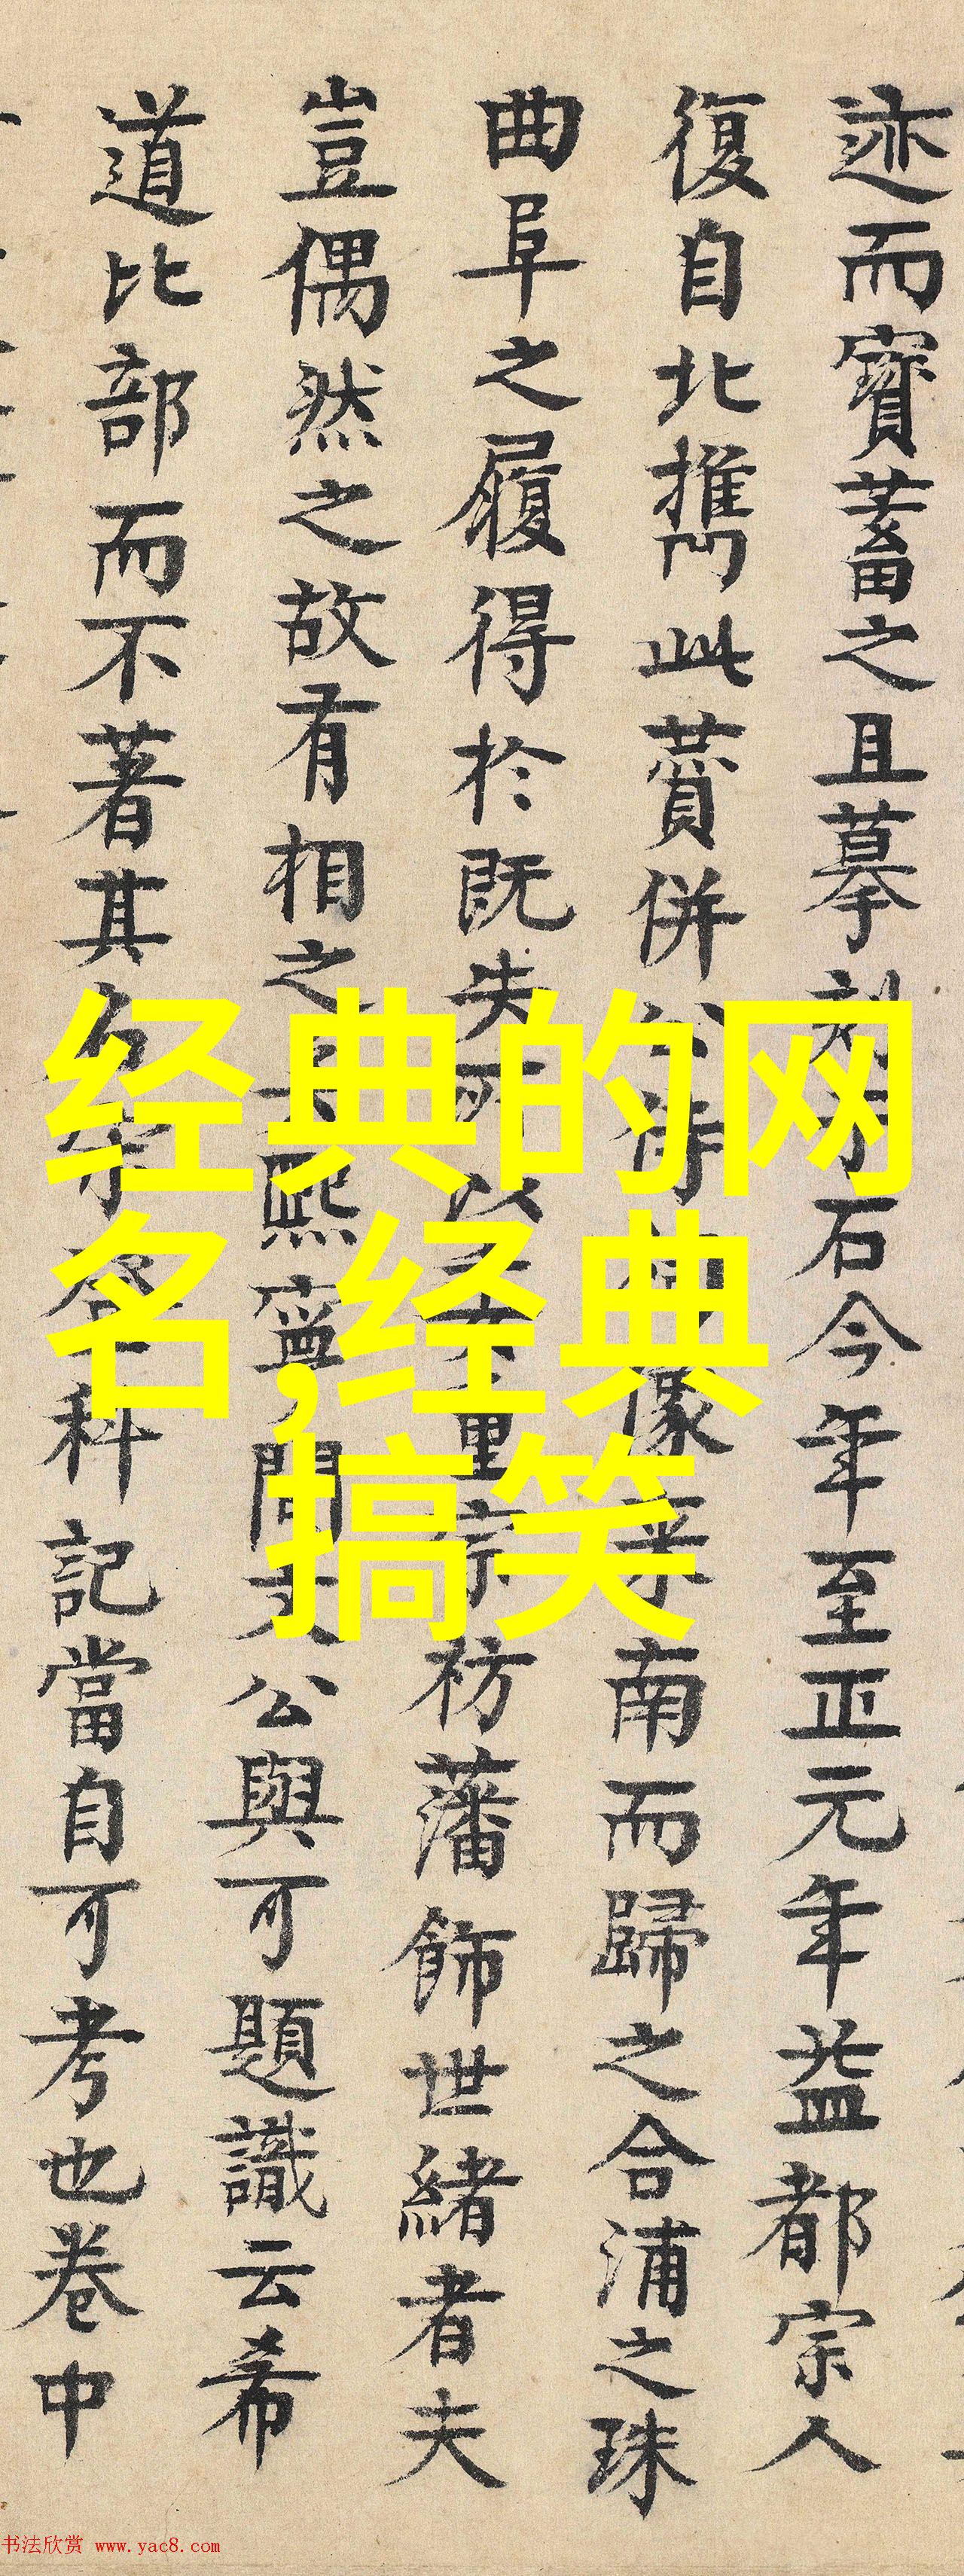 迹而寶蓄之且摹刻于石今年至正元年益都宗人
復自北攜此贊併像來南而歸之合浦之珠
曲阜之履得於既失可以重宗祊藩飾世緒者夫
豈偶然之故有相之熙寧間文公與可題識云希
道比部而不著其名字登科記當自可考也卷中
经典的网
名,经典
搞笑
书法欣赏 www.yac8.com